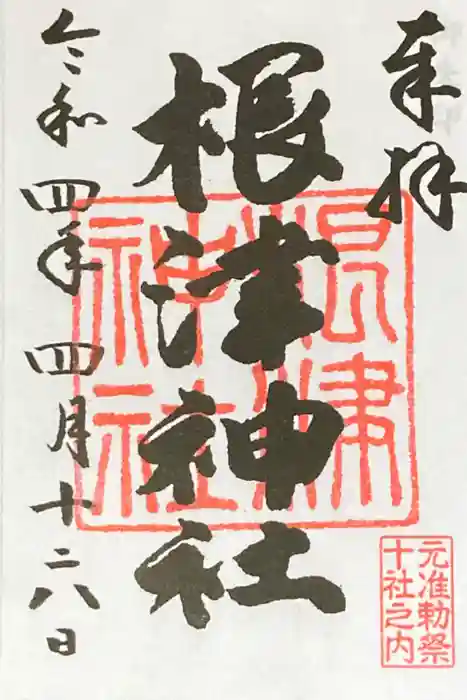 奉拝
根津神社
根津
神社
元准勅祭
十社之内
令和四年四月十六日